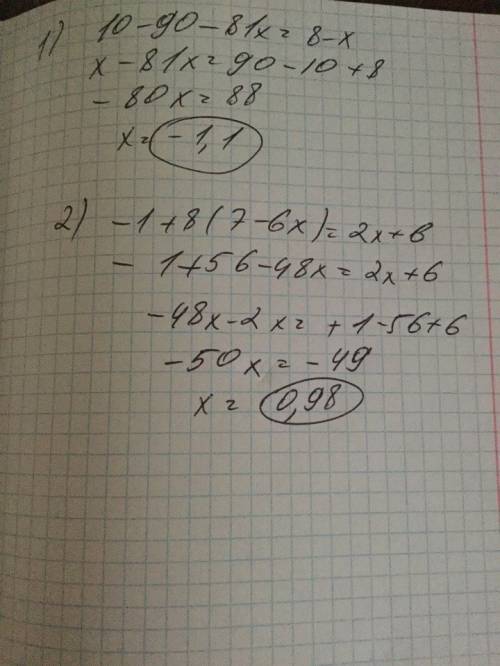 1) 10-90-81x=8-x
x-81x=90-10+8
-80x=88
x=-1,1
2) -1+8(7-6x)=2x+6
-1+56-48x=2x+6
-48x-2x=+1-56+6
-50x=-49
x=0,98